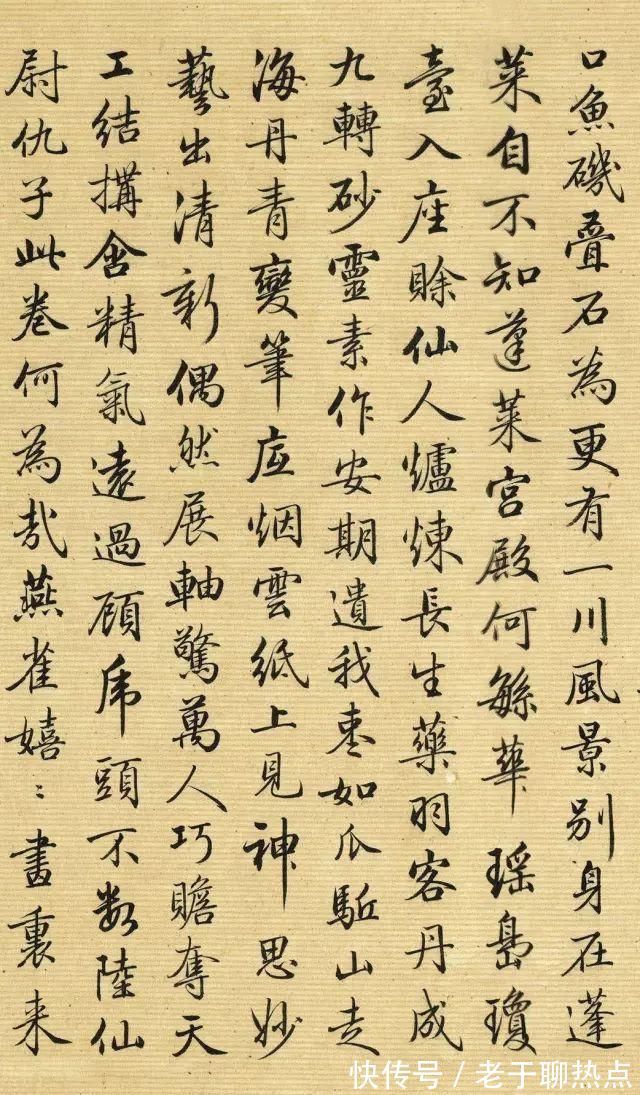 口魚磯疊石為更有一川風景別身在蓬
萊自不知蓬萊宮殿何緐華瑤島瓊
臺入座賖仙人爐煉長生藥羽客丹成
九轉砂靈素作安期遺我棗如瓜駈山走
海丹青變筆底烟雲紙上見神思妙
藝出清新偶然展軸驚萬人巧贍奪天
工結搆含精氣遠過顧虎頭不数陸仙
尉仇子此卷何為哉燕雀嬉〻畫裏来
快传号 / 老于聊热点